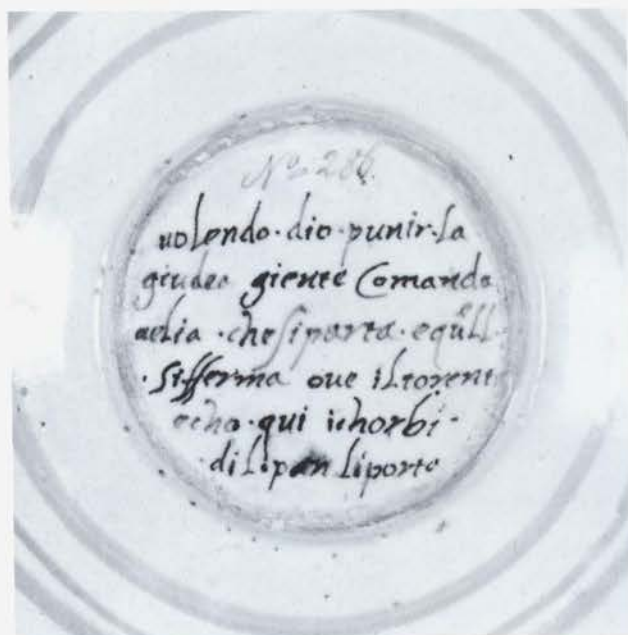 No 286.
uolendo·dio·punir·la
giudea giente Comanda
aelia·che siparta·equll·
·sifferma oue iltorent
echo·qui ichorbi·
·dilopan liporto